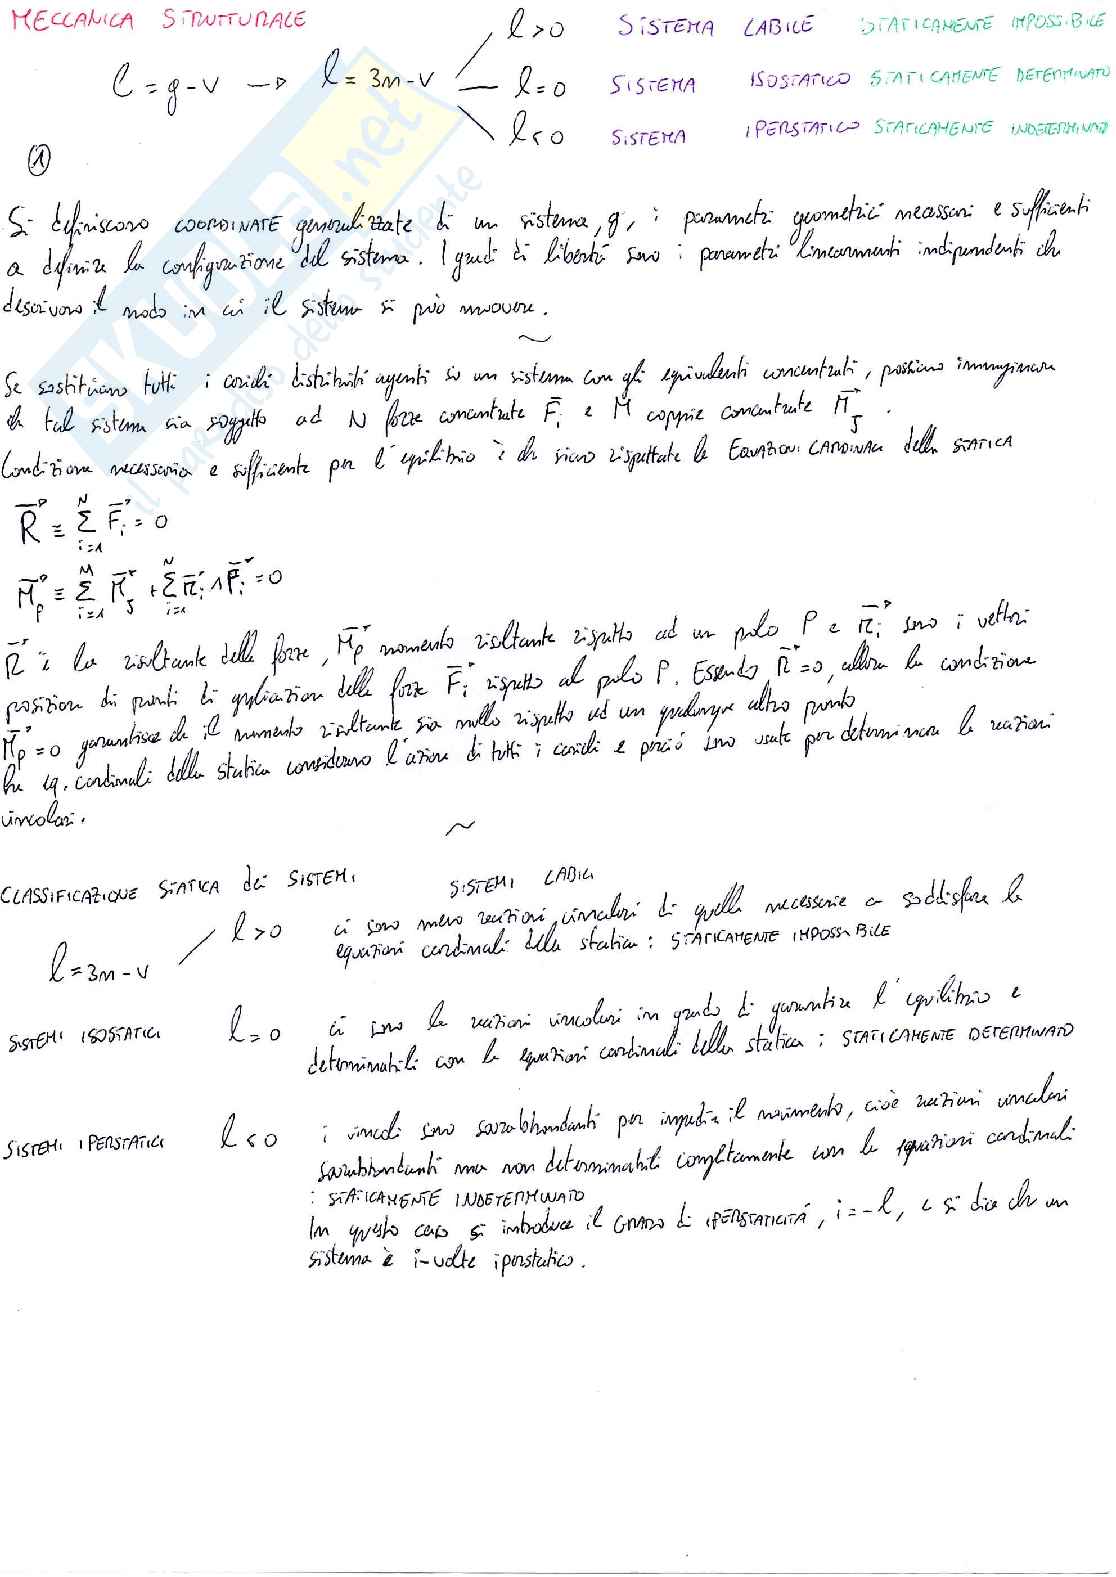 MECCANICA STRUTTURALE
l = g - v → l = 3n - v
l > 0 SISTEMA LABILE STATICAMENTE IMPOSSIBILE
l = 0 SISTEMA ISOSTATICO STATICAMENTE DETERMINATO
l < 0 SISTEMA IPERSTATICO STATICAMENTE INDETERMINATO
①
Si definiscono COORDINATE generalizzate di un sistema, g, i parametri geometrici necessari e sufficienti
a definire la configurazione del sistema. I gradi di libertà sono i parametri linearmenti indipendenti che
descrivono il modo in cui il sistema si può muovere.
~
Se sostituiamo tutti i carichi distribuiti agenti su un sistema con gli equivalenti concentrati, possiamo immaginare
che tale sistema sia soggetto ad N forze concentrate F⃗i e M coppie concentrate M⃗j.
Condizione necessaria e sufficiente per l'equilibrio è che siano rispettate le EQUAZIONI CARDINALI della STATICA
R⃗ ≡ Σ_{i=1}^{N} F⃗i = 0
M⃗p ≡ Σ_{i=1}^{M} M⃗j + Σ_{i=1}^{N} r⃗i ∧ F⃗i = 0
R⃗ è la risultante delle forze, M⃗p momento risultante rispetto ad un polo P e r⃗i sono i vettori
posizione dei punti di applicazione delle forze F⃗i rispetto al polo P. Essendo R⃗ = 0, allora la condizione
M⃗p = 0 garantisce che il momento risultante sia nullo rispetto ad un qualunque altro punto
Le eq. cardinali della statica considerano l'azione di tutti i carichi e perciò sono usate per determinare le reazioni
vincolari.
~
CLASSIFICAZIONE STATICA dei SISTEMI
SISTEMI LABILI
l = 3n - v
l > 0 ci sono meno reazioni vincolari di quelle necessarie a soddisfare le
equazioni cardinali della statica : STATICAMENTE IMPOSSIBILE
SISTEMI ISOSTATICI l = 0 ci sono le reazioni vincolari in grado di garantire l'equilibrio e
determinabili con le equazioni cardinali della statica : STATICAMENTE DETERMINATO
SISTEMI IPERSTATICI l < 0 i vincoli sono sovrabbondanti per impedire il movimento, cioè reazioni vincolari
sovrabbondanti ma non determinabili completamente con le equazioni cardinali
: STATICAMENTE INDETERMINATO
In questo caso si introduce il GRADO di IPERSTATICITÁ, i = - l, e si dice che un
sistema è i-volte iperstatico.
SKUOLA.net
il paradiso dello studente